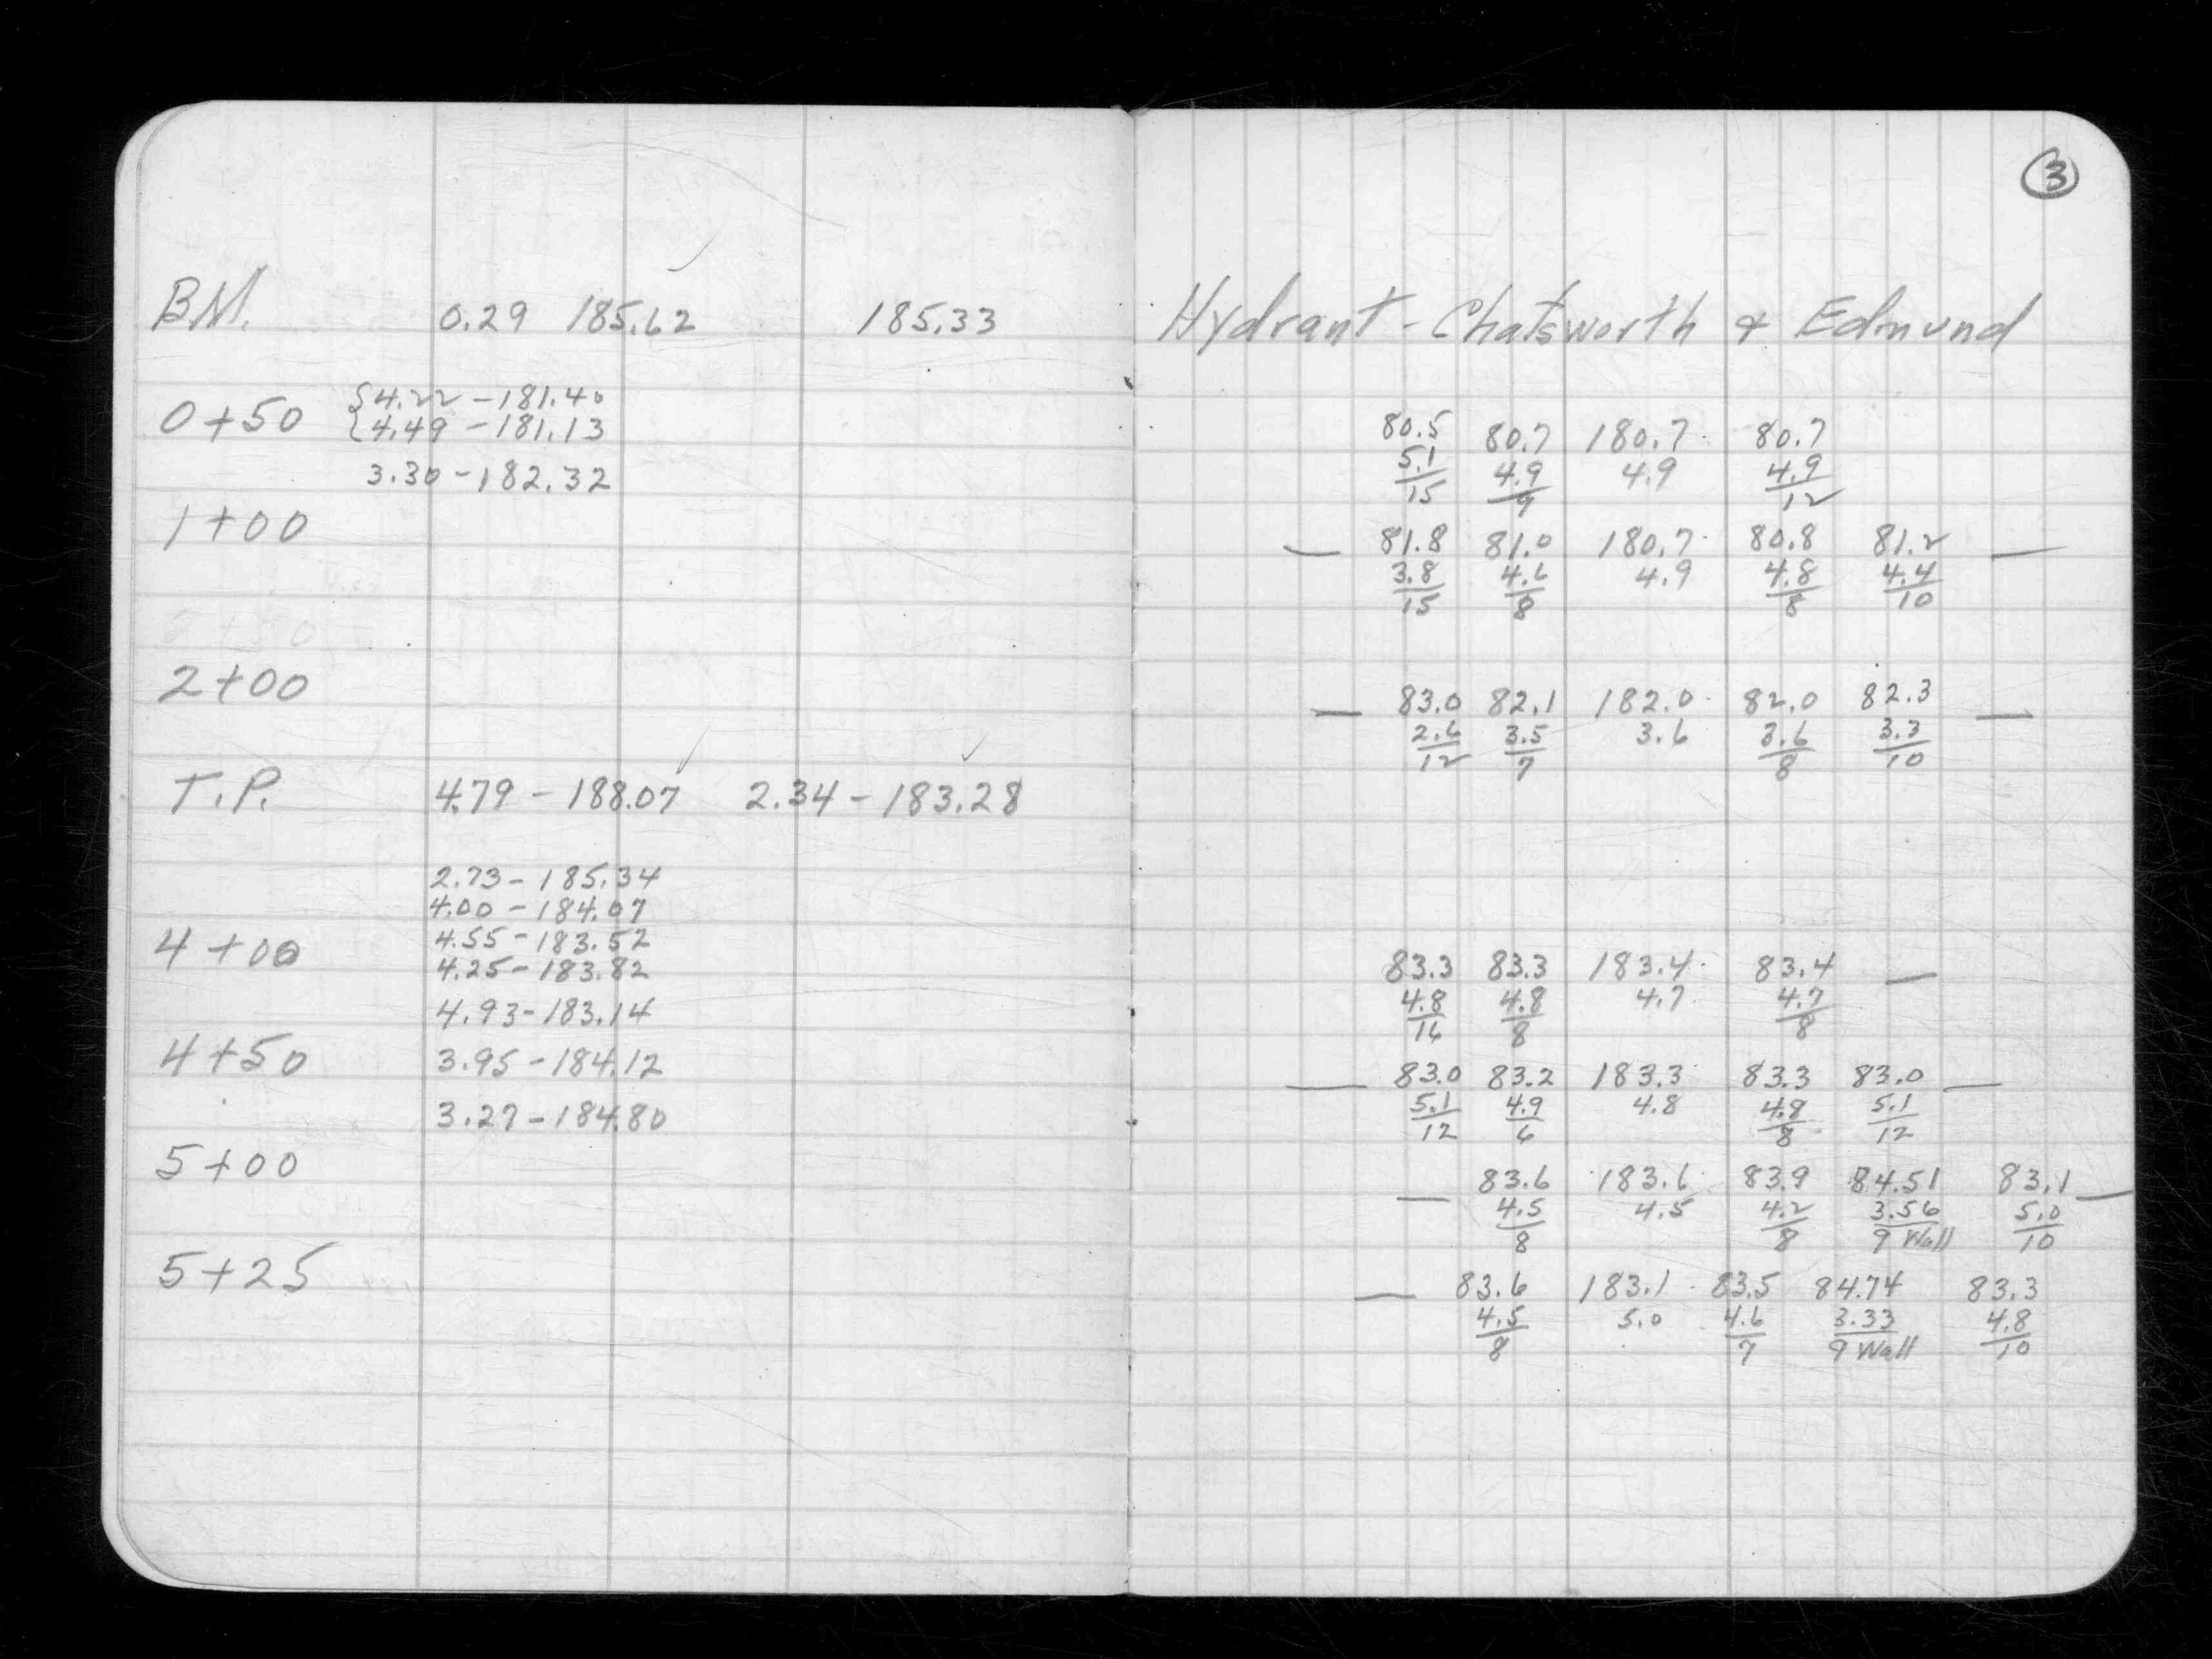 3
B.M. 0.29 185.62 185.33 Hydrant - Chatsworth & Edmund
4.22 - 181.40
0+50 4.49 - 181.13
3.30 - 182.32
80.5 80.7 180.7 80.7
5.1 4.9 4.9 4.9
15 9 12
1+00
81.8 81.0 180.7 80.8 81.2
3.8 4.6 4.9 4.8 4.4
15 8 8 10
0+50
2+00
83.0 82.1 182.0 82.0 82.3
2.6 3.5 3.6 3.6 3.3
12 7 8 10
T.P. 4.79 - 188.07 2.34 - 183.28
2.73 - 185.34
4.00 - 184.07
4.55 - 183.52
4+00
4.25 - 183.82
4.93 - 183.14
83.3 83.3 183.4 83.4
4.8 4.8 4.7 4.7
16 8 8
4+50 3.95 - 184.12
3.27 - 184.80
83.0 83.2 183.3 83.3 83.0
5.1 4.9 4.8 4.8 5.1
12 6 8 12
5+00
83.6 183.6 83.9 84.51 83.1
4.5 4.5 4.2 3.56 5.0
8 8 9 Wall 10
5+25
83.6 183.1 83.5 84.74 83.3
4.5 5.0 4.6 3.33 4.8
8 7 9 Wall 10